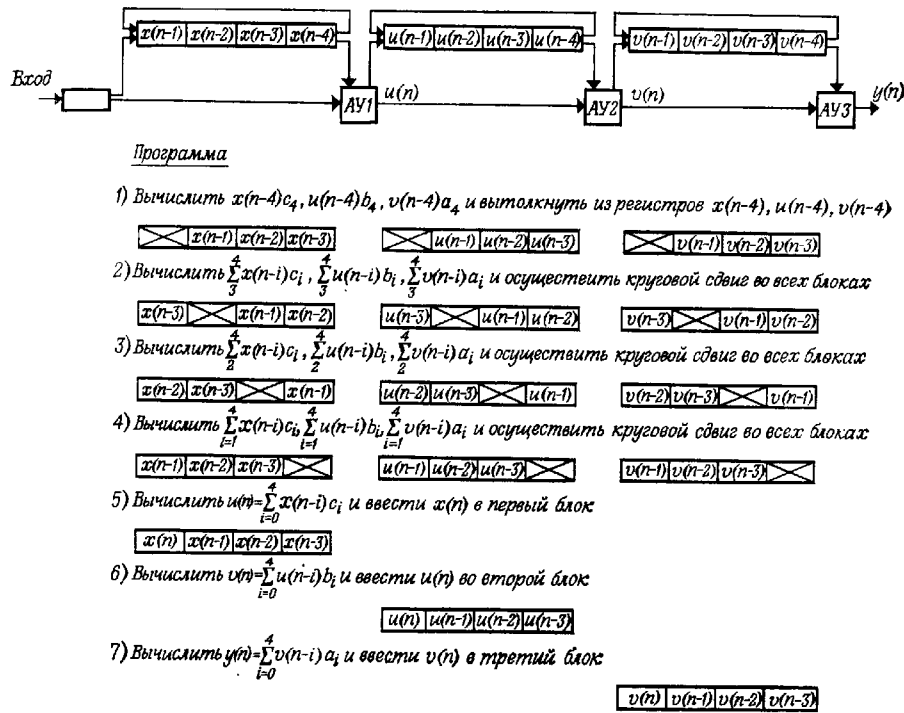 x(n-1) x(n-2) x(n-3) x(n-4) u(n-1) u(n-2) u(n-3) u(n-4) v(n-1) v(n-2) v(n-3) v(n-4)
Вход АУ1 u(n) АУ2 v(n) АУ3 y(n)
Программа
1) Вычислить x(n-4)c₄, u(n-4)b₄, v(n-4)a₄ и вытолкнуть из регистров x(n-4), u(n-4), v(n-4)
x(n-1) x(n-2) x(n-3) u(n-1) u(n-2) u(n-3) v(n-1) v(n-2) v(n-3)
2) Вычислить ∑₃⁴x(n-i)cᵢ, ∑₃⁴u(n-i)bᵢ, ∑₃⁴v(n-i)aᵢ и осуществить круговой сдвиг во всех блоках
x(n-3) x(n-1) x(n-2) u(n-3) u(n-1) u(n-2) v(n-3) v(n-1) v(n-2)
3) Вычислить ∑₂⁴x(n-i)cᵢ, ∑₂⁴u(n-i)bᵢ, ∑₂⁴v(n-i)aᵢ и осуществить круговой сдвиг во всех блоках
x(n-2) x(n-3) x(n-1) u(n-2) u(n-3) u(n-1) v(n-2) v(n-3) v(n-1)
4) Вычислить ∑ᵢ₌₁⁴x(n-i)cᵢ, ∑ᵢ₌₁⁴u(n-i)bᵢ, ∑ᵢ₌₁⁴v(n-i)aᵢ и осуществить круговой сдвиг во всех блоках
x(n-1) x(n-2) x(n-3) u(n-1) u(n-2) u(n-3) v(n-1) v(n-2) v(n-3)
5) Вычислить u(n)=∑ᵢ₌₀⁴x(n-i)cᵢ и ввести x(n) в первый блок
x(n) x(n-1) x(n-2) x(n-3)
6) Вычислить v(n)=∑ᵢ₌₀⁴u(n-i)bᵢ и ввести u(n) во второй блок
u(n) u(n-1) u(n-2) u(n-3)
7) Вычислить y(n)=∑ᵢ₌₀⁴v(n-i)aᵢ и ввести v(n) в третий блок
v(n) v(n-1) v(n-2) v(n-3)